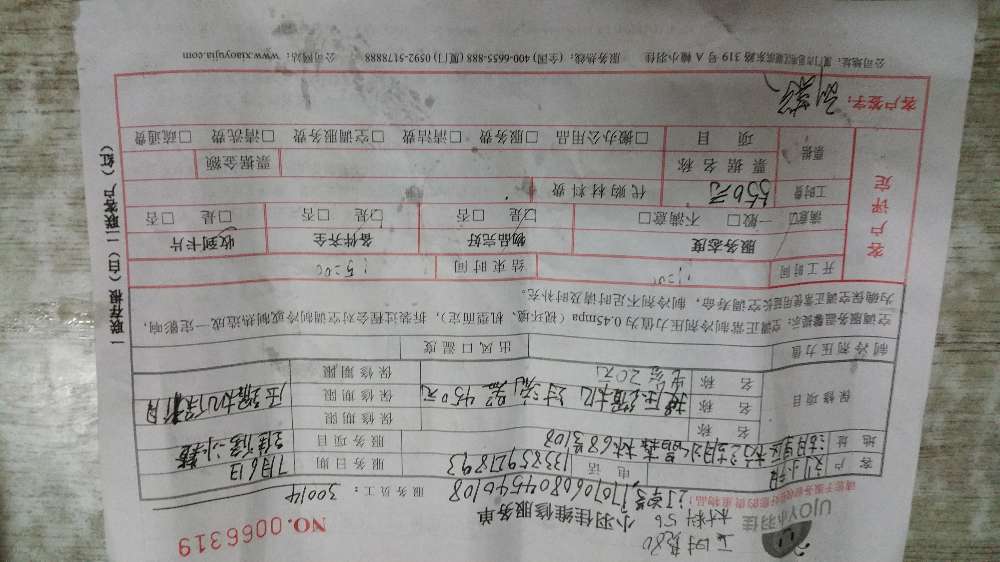 工时费80
材料56
UJOY小羽佳
小羽佳维修服务单
NO.0066319
订单号:1707060804540108
服务员工:30014
请您于服务前收好您的贵重物品!
客户 刘小姐 电话 13385927893 服务日期 7月6日
地址 服务项目
保修项目
名称 保修期限
名称 换压缩机 过滤器 450元 保修期限
名称 电容20元 保修期限
制冷剂压力值 出风口温度
空调服务温馨提示:空调正常制冷剂压力值为0.45mpa(视环境、机型而定),拆装过程会对空调制冷或制热造成一定影响,
为确保空调正常使用延长空调寿命,制冷剂不足时请及时补充。
客户评定
开工时间 结束时间 15:00
服务态度 物品完好 备件齐全 收到卡片
满意☑ 一般□ 不满意□ ☑是 □否 ☑是 □否 □是 □否
工时费 550元 代购材料费
票据 票据名称 票据金额
项目 □办公用品 □服务费 □清洁费 □空调服务费 □清洗费 □疏通费
客户签字:
公司地址:厦门市思明区观音东路319号A幢小羽佳 服务热线:(全国) 400-6655-888 (厦门) 0592-5178888 公司网站:www.xiaoyujia.com
一联存根(白)二联客户(红)